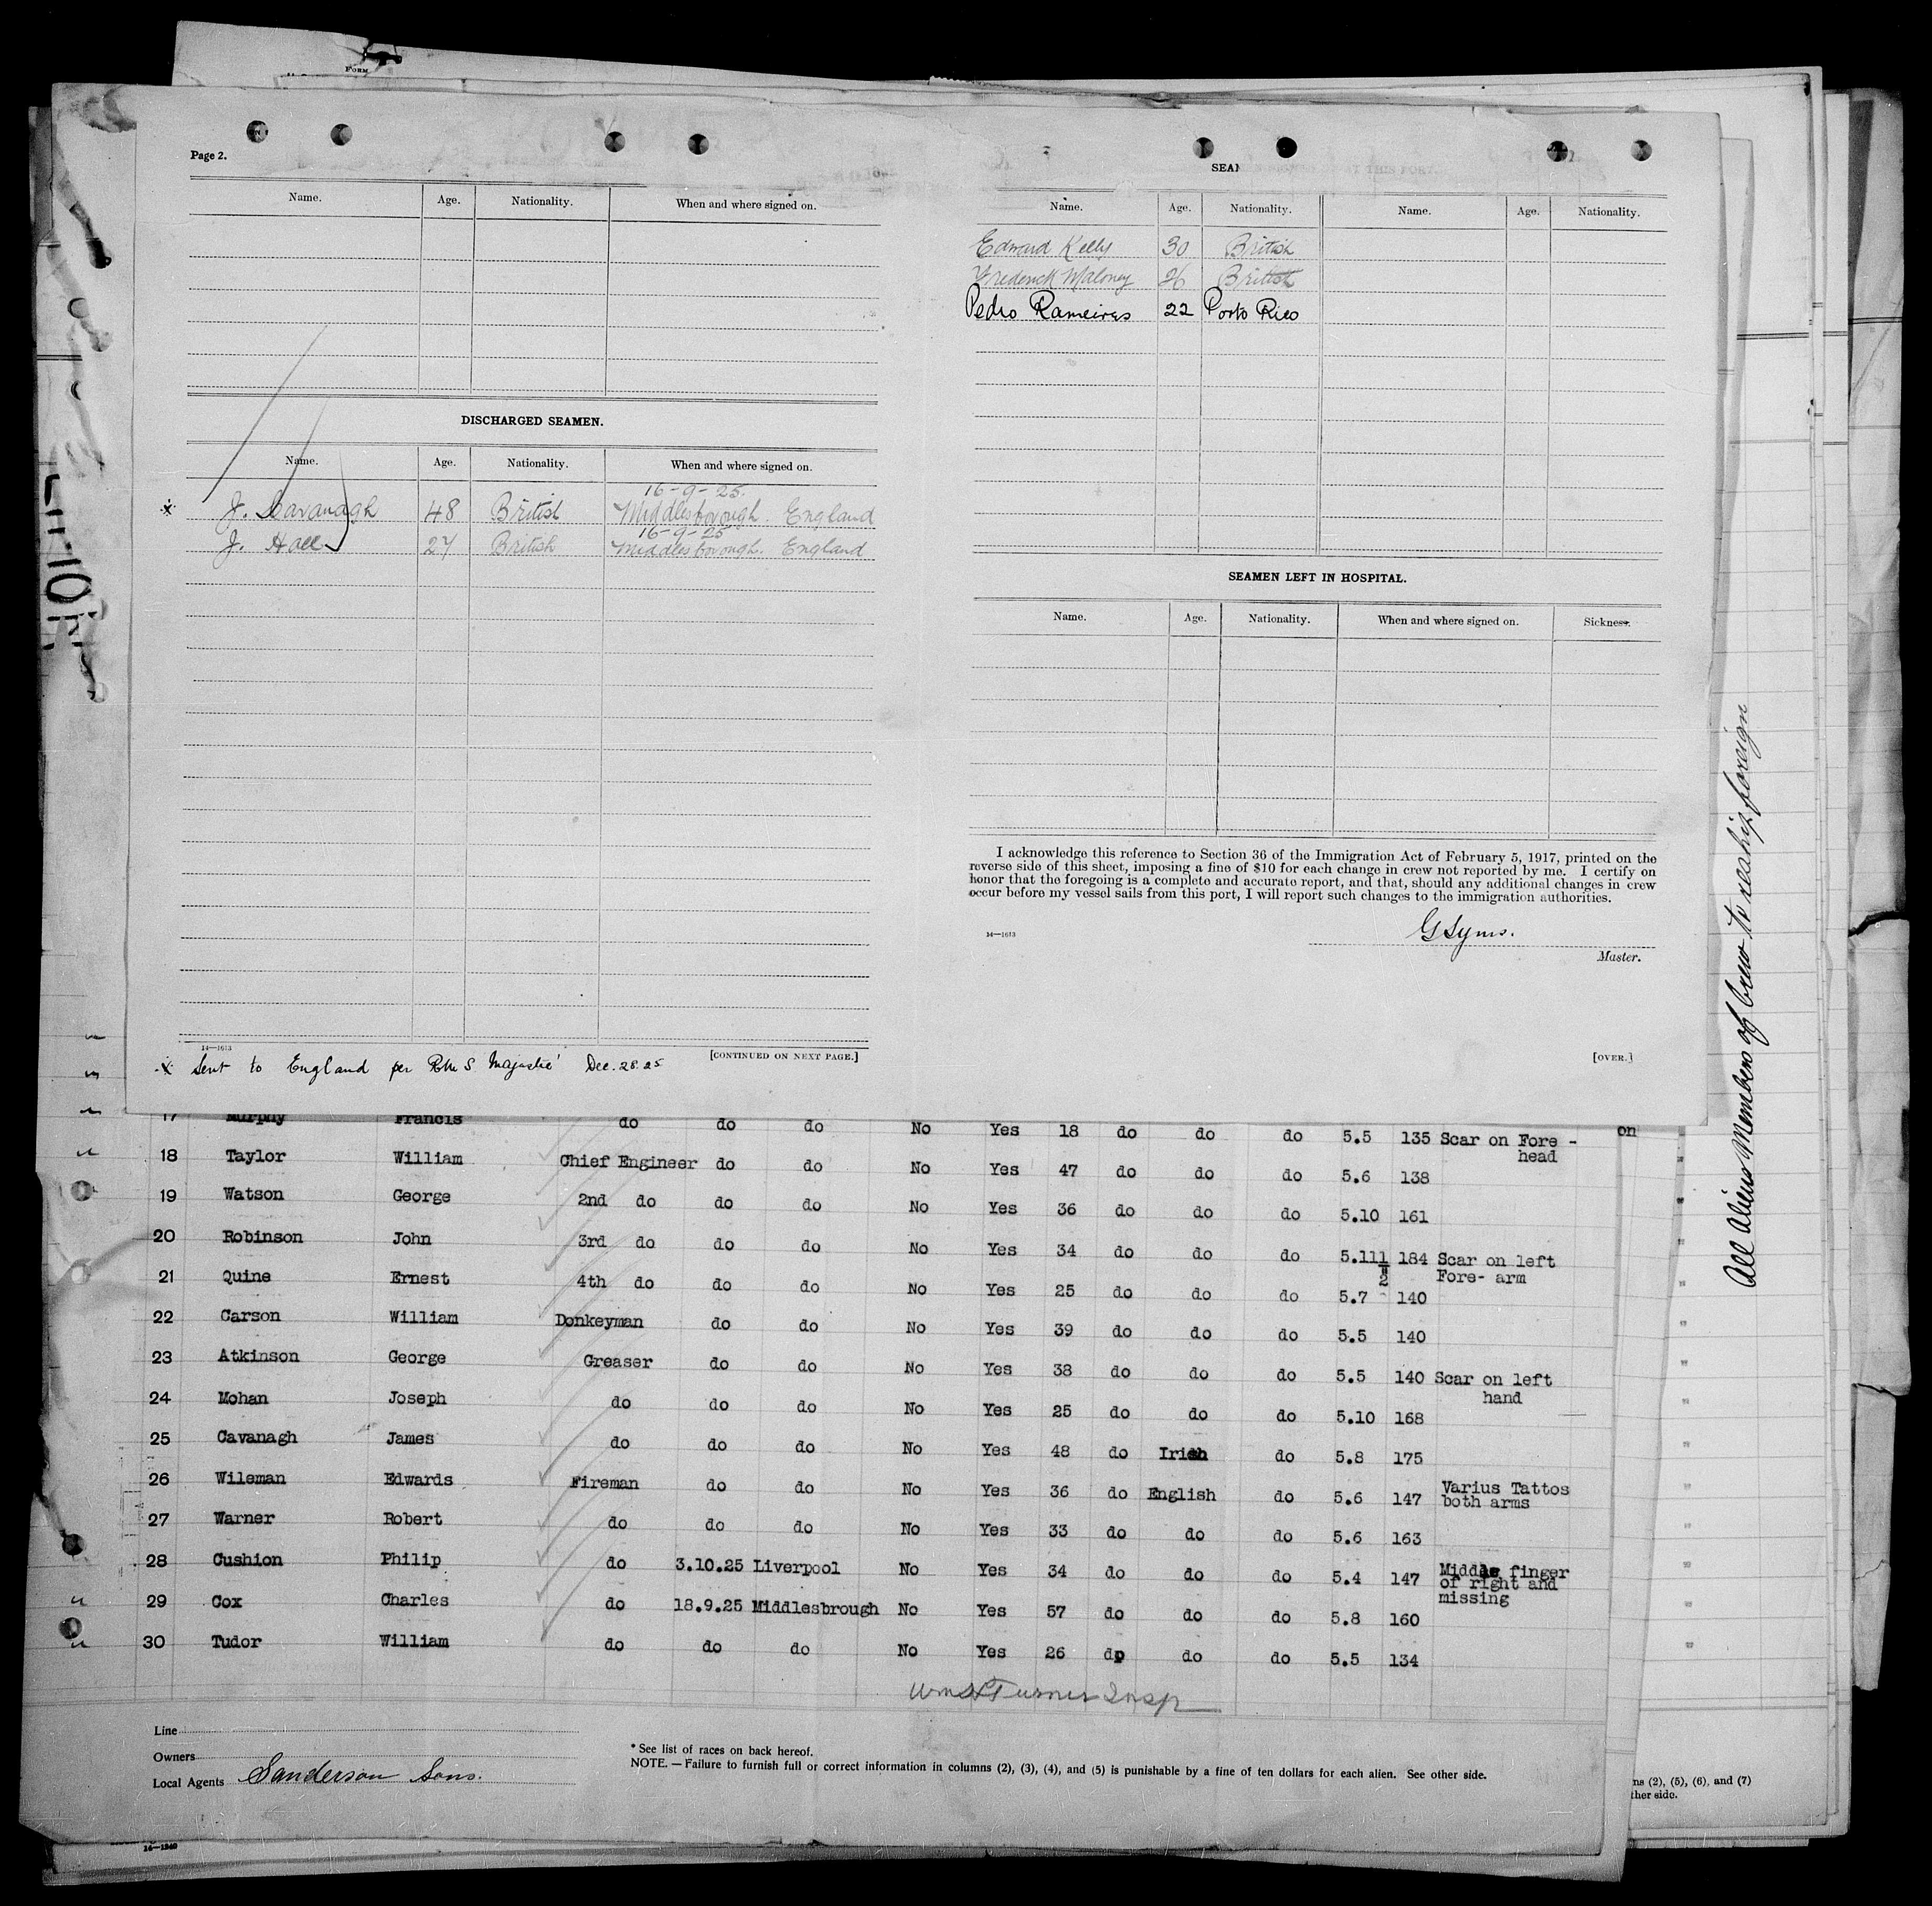 Form
Page 2.
Name. Age. Nationality. When and where signed on.
DISCHARGED SEAMEN.
Name. Age. Nationality. When and where signed on.
16-9-25.
x J. Cavanagh 48 British Middlesborough. England
16-9-25
J. Hall 27 British Middlesborough. England
14—1613
[CONTINUED ON NEXT PAGE.]
x Sent to England per R.M.S. Majestic' Dec. 28. 25
SEA
AT THIS PORT.
Name. Age. Nationality. Name. Age. Nationality.
Edward Kelly 30 British
Frederick Maloney 26 British
Pedro Rameires 22 Porto Rico
SEAMEN LEFT IN HOSPITAL.
Name. Age. Nationality. When and where signed on. Sickness.
I acknowledge this reference to Section 36 of the Immigration Act of February 5, 1917, printed on the
reverse side of this sheet, imposing a fine of $10 for each change in crew not reported by me. I certify on
honor that the foregoing is a complete and accurate report, and that, should any additional changes in crew
occur before my vessel sails from this port, I will report such changes to the immigration authorities.
14—1613
G Syms.
Master.
[OVER.]
17 Murphy Francis do do do No Yes 18 do do do 5.5 135 Scar on Fore -
head
on
18 Taylor William Chief Engineer do do No Yes 47 do do do 5.6 138
19 Watson George 2nd do do do No Yes 36 do do do 5.10 161
20 Robinson John 3rd do do do No Yes 34 do do do 5.11½ 184 Scar on left
Fore- arm
21 Quine Ernest 4th do do do No Yes 25 do do do 5.7 140
22 Carson William Donkeyman do do No Yes 39 do do do 5.5 140
23 Atkinson George Greaser do do No Yes 38 do do do 5.5 140 Scar on left
hand
24 Mohan Joseph do do do No Yes 25 do do do 5.10 168
25 Cavanagh James do do do No Yes 48 do Irish do 5.8 175
26 Wileman Edwards Fireman do do No Yes 36 do English do 5.6 147 Varius Tattos
both arms
27 Warner Robert do do do No Yes 33 do do do 5.6 163
28 Cushion Philip do 3.10.25 Liverpool No Yes 34 do do do 5.4 147 Middle finger
of right and
missing
29 Cox Charles do 18.9.25 Middlesbrough No Yes 57 do do do 5.8 160
30 Tudor William do do do No Yes 26 do do do 5.5 134
Wm H Turner Insp
Line
Owners
Local Agents Sanderson Sons.
* See list of races on back hereof.
NOTE. — Failure to furnish full or correct information in columns (2), (3), (4), and (5) is punishable by a fine of ten dollars for each alien. See other side.
14—1240
ns (2), (5), (6), and (7)
ther side.
All Aliens Members of Crew to reship foreign